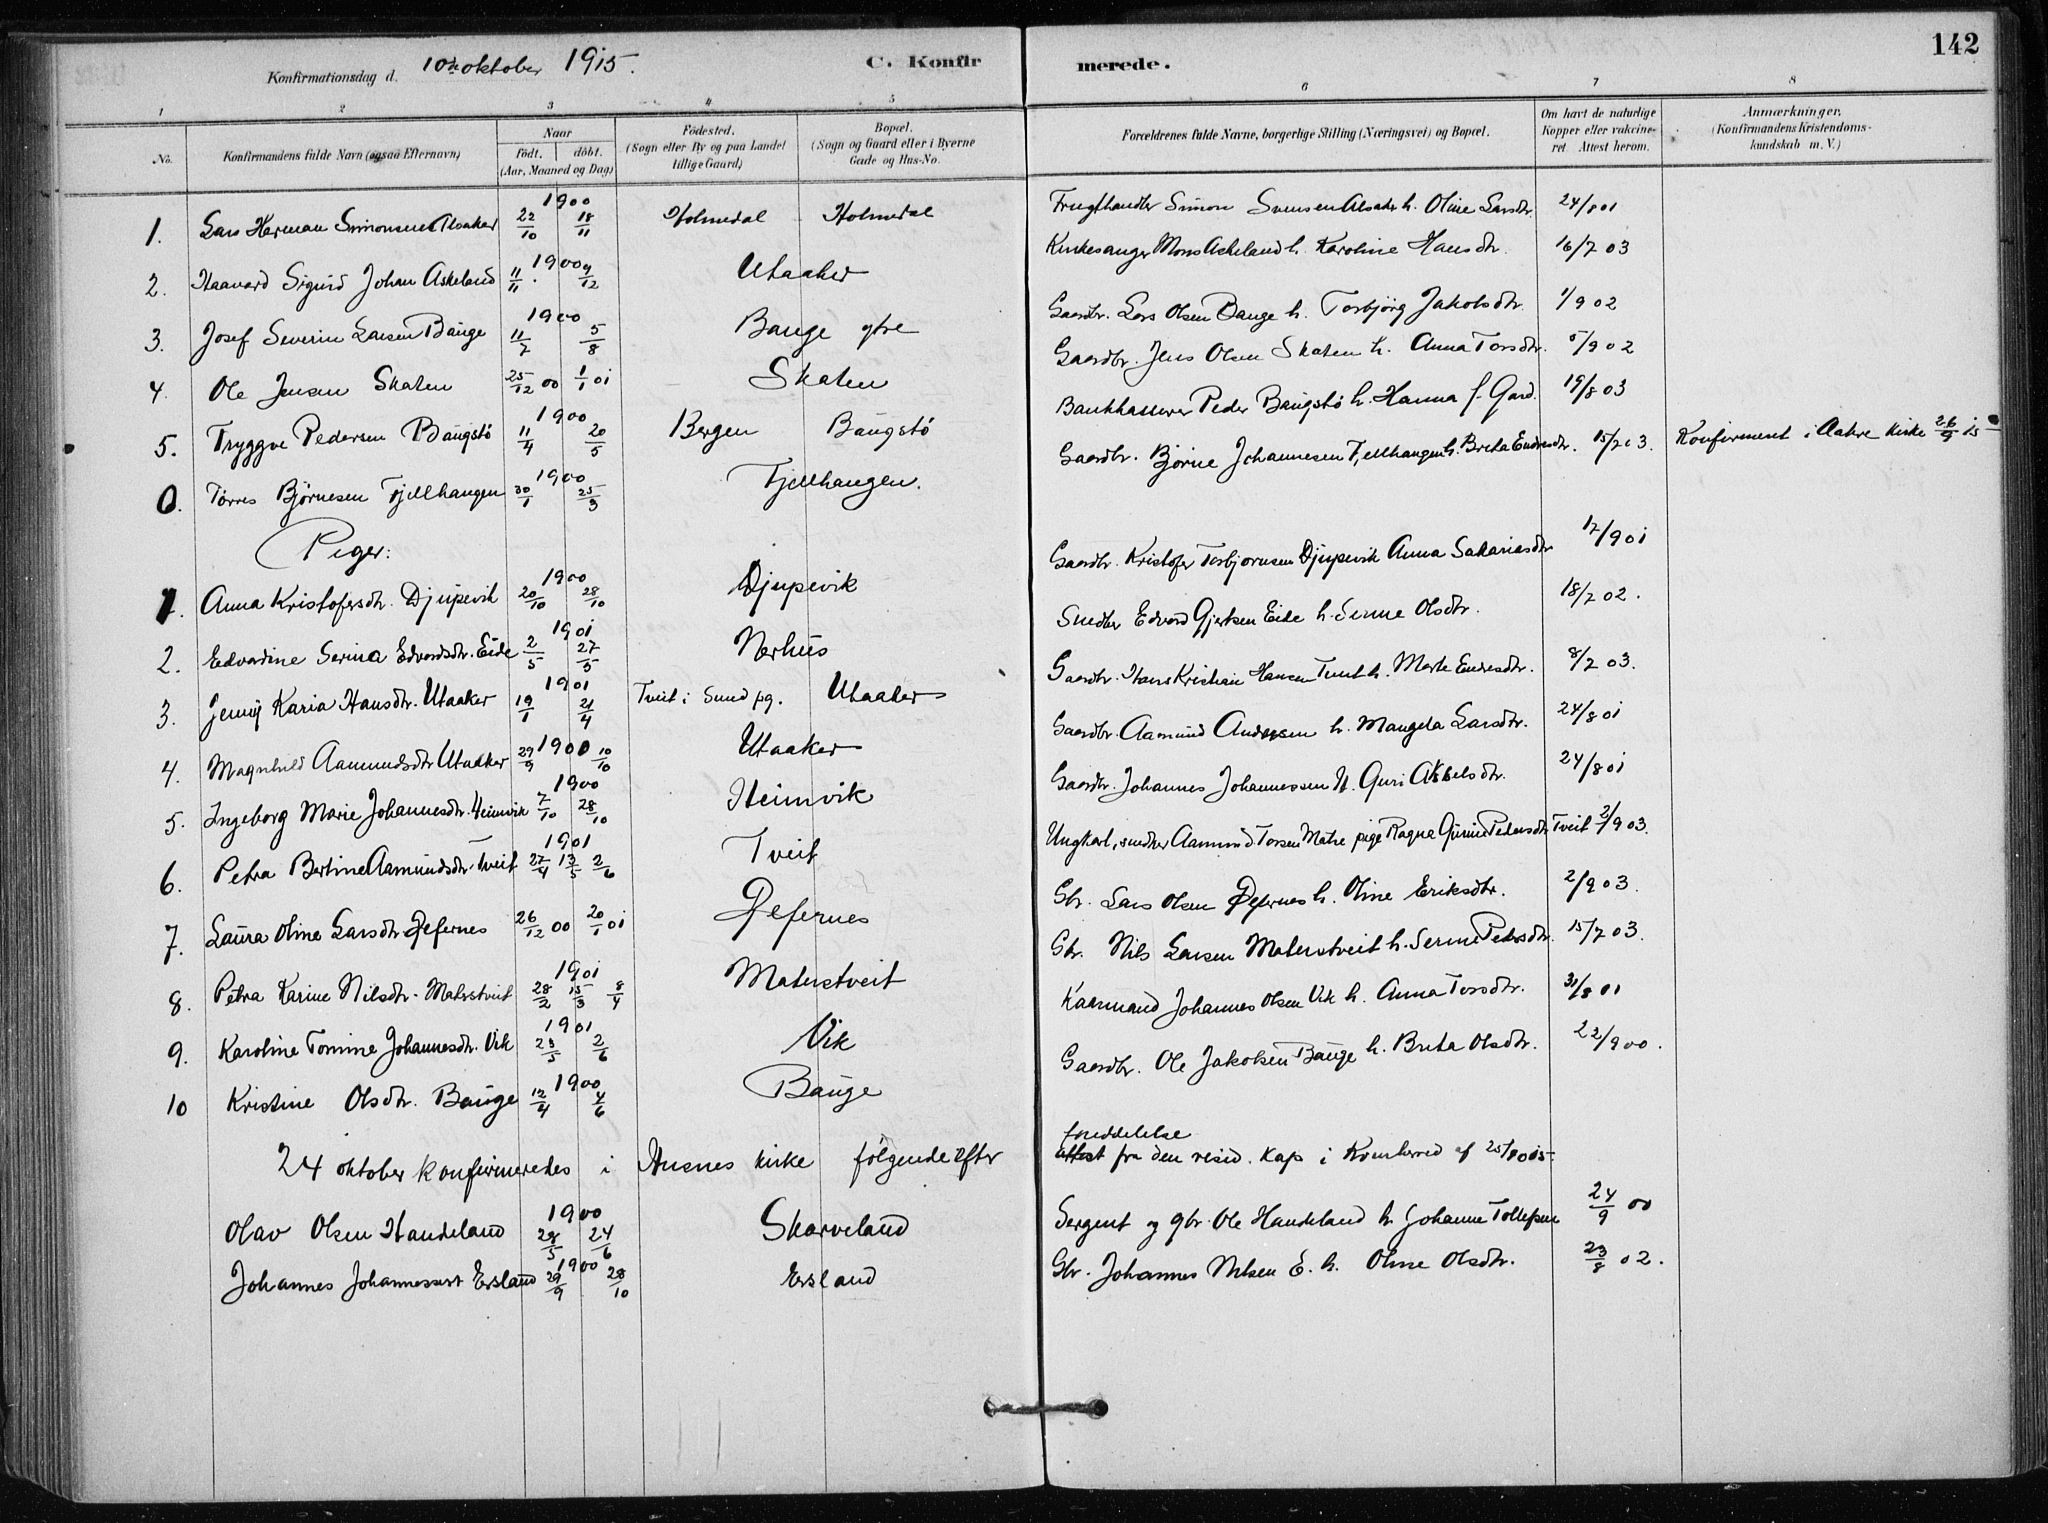 142
Konfirmationsdag d. 10de oktober 1915. C. Konfirmerede.
1 2 3 4 5 6 7 8
No. Konfirmandens fulde Navn (ogsaa Efternavn) Naar født. døbt. (Aar, Maaned og Dag) Fødested. (Sogn eller By og paa Landet tillige Gaard) Bopæl. (Sogn og Gaard eller i Byerne Gade og Hus-No. Forældrenes fulde Navne, borgerlige Stilling (Næringsvei) og Bopæl. Om havt de naturlige Kopper eller vakcineret. Attest herom. Anmærkninger. (Konfirmandens Kristendomskundskab m. V.)
1. Lars Herman Simonsen 1900 22/10 18/11 Holmedal Holmedal Frugthandler Simon Svensen h. Oline Larsdtr. 24/8 01
2. Haavard Sigurd Johan Askeland 1900 11/11 9/12 Utaaker Kirkesanger Mons Askeland h. Karoline Hansdtr. 16/7 03
3. Josef Severin Larsen Bauge 1900 11/7 5/8 Bauge ytre Gaardbr. Lars Olsen Bauge h. Torbjörg Jakobsdtr. 1/9 02
4. Ole Jensen Skaten 25/12 00 1/1 01 Skaten Gaardbr. Jens Olsen Skaten h. Anna Torsdtr. 5/9 02
5. Tryggve Pedersen Baugstø 1900 11/4 20/5 Bergen Baugstø Bankkasserer Peder Baugstø h. Hanna f. Gard. 19/8 03
6. Torres Bjørnesen Fjellhaugen 1900 30/1 25/3 Fjellhaugen. Gaardbr. Bjørne Johannesen Fjellhaugen h. Brita Endresdtr. 15/7 03. Konfirmert i Aakre kirke 26/9 15
Piger:
1. Anna Kristofersdtr. Djupevik 1900 20/10 28/10 Djupevik Gaardbr. Kristofer Torbjornsen Djupevik Anna Sakariasdtr 17/9 01
2. Edvardine Serina Edvardsdtr. Eide 1901 2/5 27/5 Nerhus Snedker Edvard Gjertsen Eide h. Serine Olsdtr. 18/7 02.
3. Jenny Karia Hansdtr. Utaaker 1901 19/1 21/4 Tveit i Sund pg. Utaaker Gaardbr. Hans Kristian Hansen Tveit h. Marte Endresdtr. 8/7 03.
4. Magnhild Aamundsdtr Utaaker 29/9 1900 10/10 Utaaker Gaardbr. Aamund Andersen h. Mangela Larsdtr. 24/8 01
5. Ingeborg Marie Johannesdtr. Heimvik 1900 7/10 28/10 Heimvik Gaardbr. Johannes Johannessen H. Guri Akselsdtr. 24/8 01
6. Petra Bertine Aamundsdtr. Tveit 1901 27/4 13/5 2/6 Tveit Ungkarl, snedker Aamund Torsen Matre pige Ragna Gurine Pedersdtr. Tveit 2/9 03.
7. Laura Oline Larsdtr. Defernes 26/12 00 20/1 01 Defernes Gbr. Lars Olsen Defernes h. Oline Eriksdtr. 2/9 03.
8. Petra Karine Nilsdtr. Materstveit 1901 28/2 15/3 8/4 Materstveit Gbr. Nils Larsen Materstveit h. Serine Petersdtr. 15/7 03.
9. Karoline Tomine Johannesdtr. Vik 1901 23/5 2/6 Vik Kaarmand Johannes Olsen Vik h. Anna Torsdtr. 31/8 01
10 Kristine Olsdtr. Bauge 1900 12/4 4/6 Bauge Gaardbr. Ole Jakobsen Bauge h. Brita Olsdtr. 22/9 00.
24 oktober konfirmeredes i Husnes kirke følgende efter meddelelse fra den resid. kap i Kvinherred af 25/10 15.
Olav Olsen Handeland 1900 28/5 24/6 Skarveland Sergent og gbr. Ole Handeland h. Johanne Tollefsen 24/9 00
Johannes Johannessen Ersland 1900 29/9 28/10 Ersland Gbr. Johannes Nilsen E. h. Oline Olsdtr. 23/8 02.